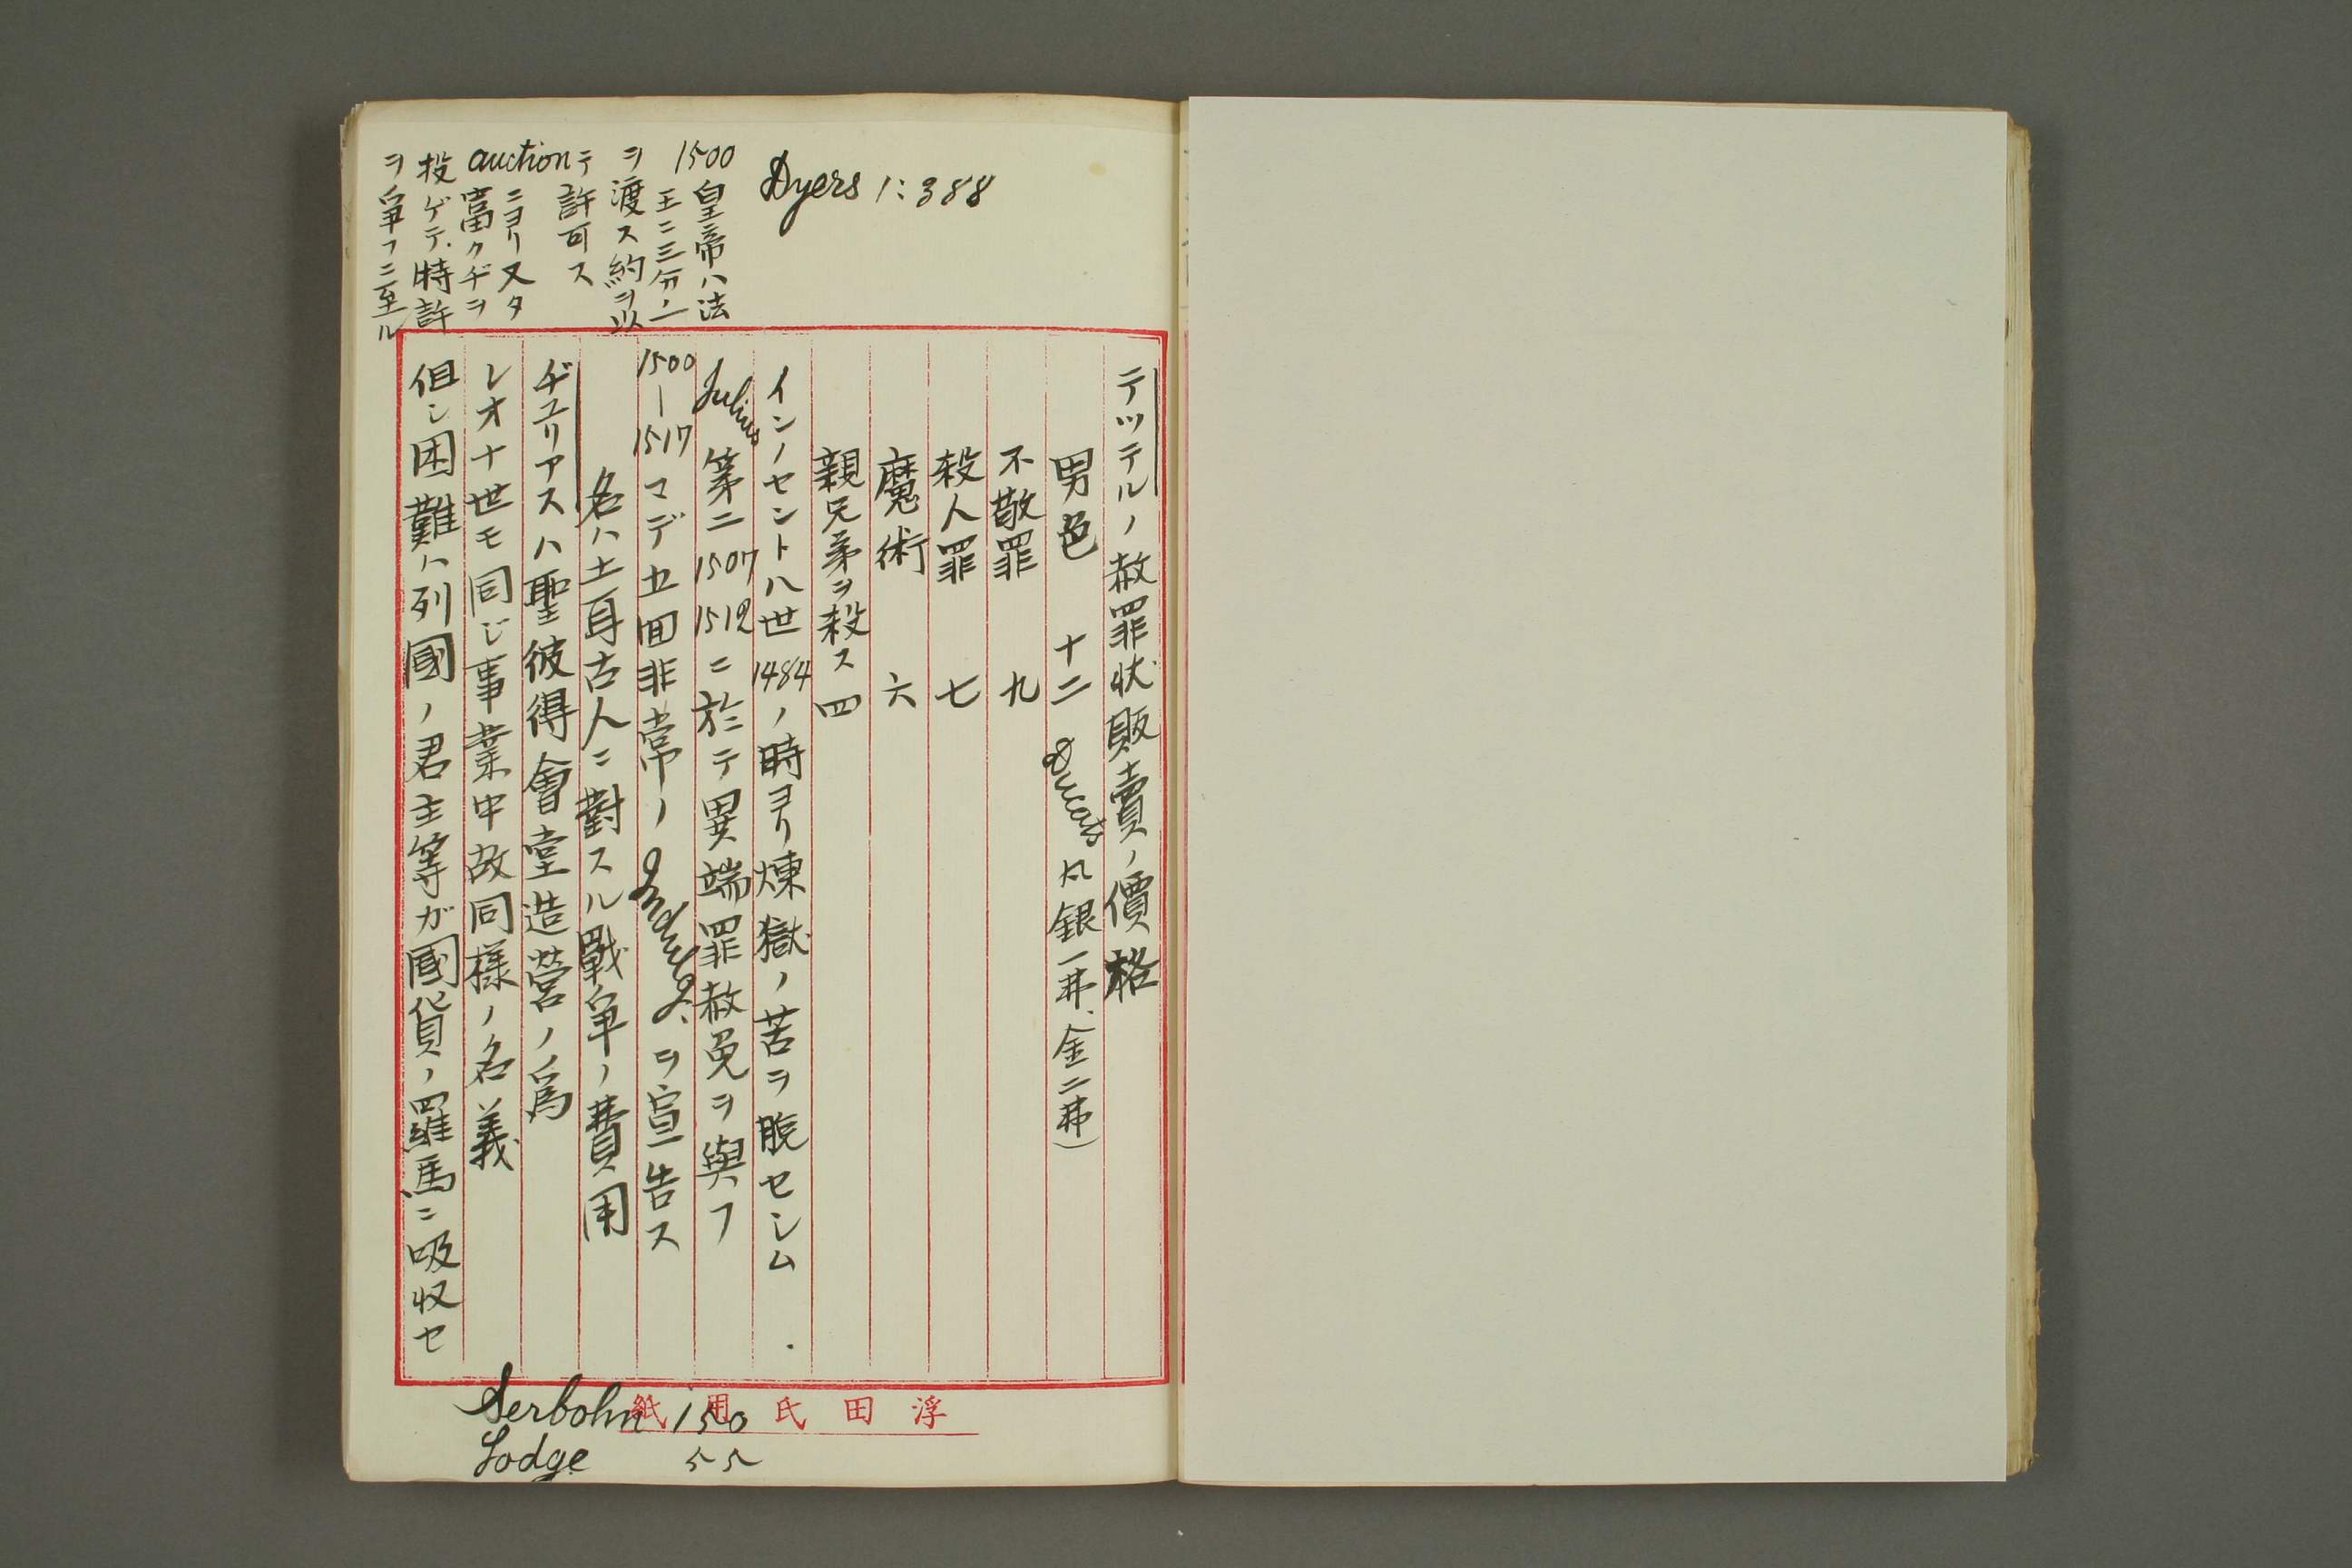 Dyers 1:388
1500 皇帝ハ法
王ニ三分ノ一
ヲ渡ス約ヲ以
テ許可ス
auction ニヨリ又タ
富クヂヲ
投ゲテ特許
ヲ争フニ至ル
テツテルノ赦罪状販賣ノ價格
男色 十二 Ducats 凡銀一弗、金二弗)
不敬罪 九
殺人罪 七
魔術 六
親兄弟ヲ殺ス 四
インノセント八世1484ノ時ヨリ煉獄ノ苦ヲ脱セシム.
Julius 第二 1507 1512ニ於テ異端罪赦免ヲ與フ
1500—1517マデ五回非常ノIndulg.ヲ宣告ス
名ハ土耳古人ニ對スル戰争ノ費用
ヂユリアスハ聖彼得會堂造営ノ爲
レオ十世モ同じ事業中故同様ノ名義
但シ困難ハ列國ノ君主等ガ國貨ノ羅馬ニ吸収セ
浮田氏用紙
Serbohn 150
Lodge 55